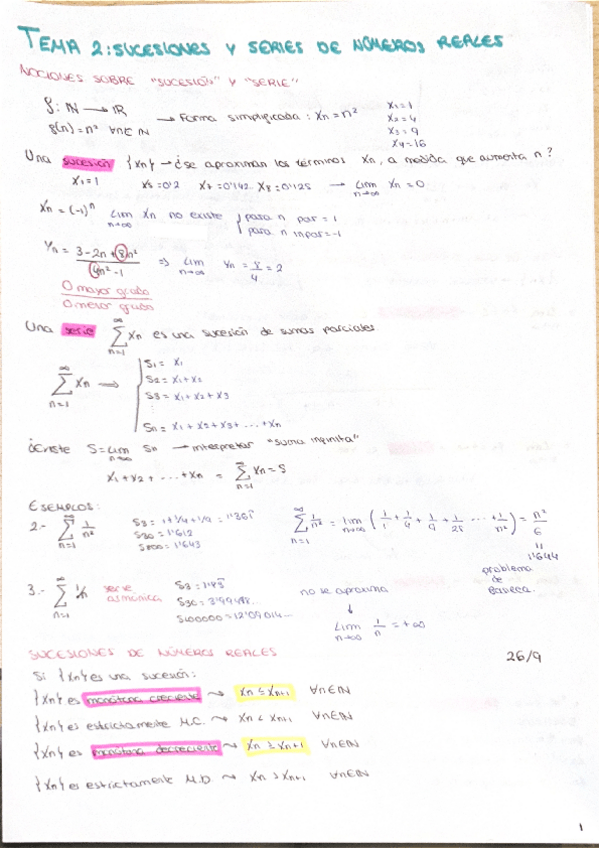 TEMA 2: SUCESIONES Y SERIES DE NÚMEROS REALES
NOCIONES SOBRE "SUCESIÓN" Y "SERIE"
f: ℕ → ℝ
f(n) = n² ∀n∈ℕ → Forma simplificada: Xn = n²
X1 = 1
X2 = 4
X3 = 9
X4 = 16
Una sucesión {Xn} → ¿se aproximan los términos Xn, a medida que aumenta n?
X1 = 1 X5 = 0'2 X7 = 0'142 X8 = 0'125 → lim n→∞ Xn = 0
Xn = (-1)ⁿ lim n→∞ Xn no existe { para n par = 1
para n impar = -1
Yn = 3 - 2n + 8n² / 4n² - 1 ⇒ lim n→∞ Yn = 8/4 = 2
O mayor grado
O menor grado
Una serie ∑ n=1 ∞ Xn es una sucesión de sumas parciales
∑ n=1 ∞ Xn →
S1 = X1
S2 = X1 + X2
S3 = X1 + X2 + X3
⋮
Sn = X1 + X2 + X3 + ... + Xn
¿Existe S = lim n→∞ Sn → interpretar "suma infinita"
X1 + X2 + ... + Xn = ∑ n=1 ∞ Xn = S
EJEMPLOS:
2.- ∑ n=1 ∞ 1/n²
S3 = 1 + 1/4 + 1/9 = 1'361
S30 = 1'612
S800 = 1'643
∑ n=1 ∞ 1/n² = lim n→∞ (1/1 + 1/4 + 1/9 + 1/25 ... + 1/n²) = π²/6
"
1'644
problema
de
3.- ∑ n=1 ∞ 1/n serie armónica
S3 = 1'83
S30 = 3'99498...
S100000 = 12'09014...
no se aproxima
↓
lim n→∞ 1/n = +∞
SUCESIONES DE NÚMEROS REALES
26/9
Si {Xn} es una sucesión:
{Xn} es monótona creciente ⇝ Xn ≤ Xn+1 ∀n∈ℕ
{Xn} es estrictamente M.C. ⇝ Xn < Xn+1 ∀n∈ℕ
{Xn} es monótona decreciente ⇝ Xn ≥ Xn+1 ∀n∈ℕ
{Xn} es estrictamente M.D. ⇝ Xn > Xn+1 ∀n∈ℕ
1